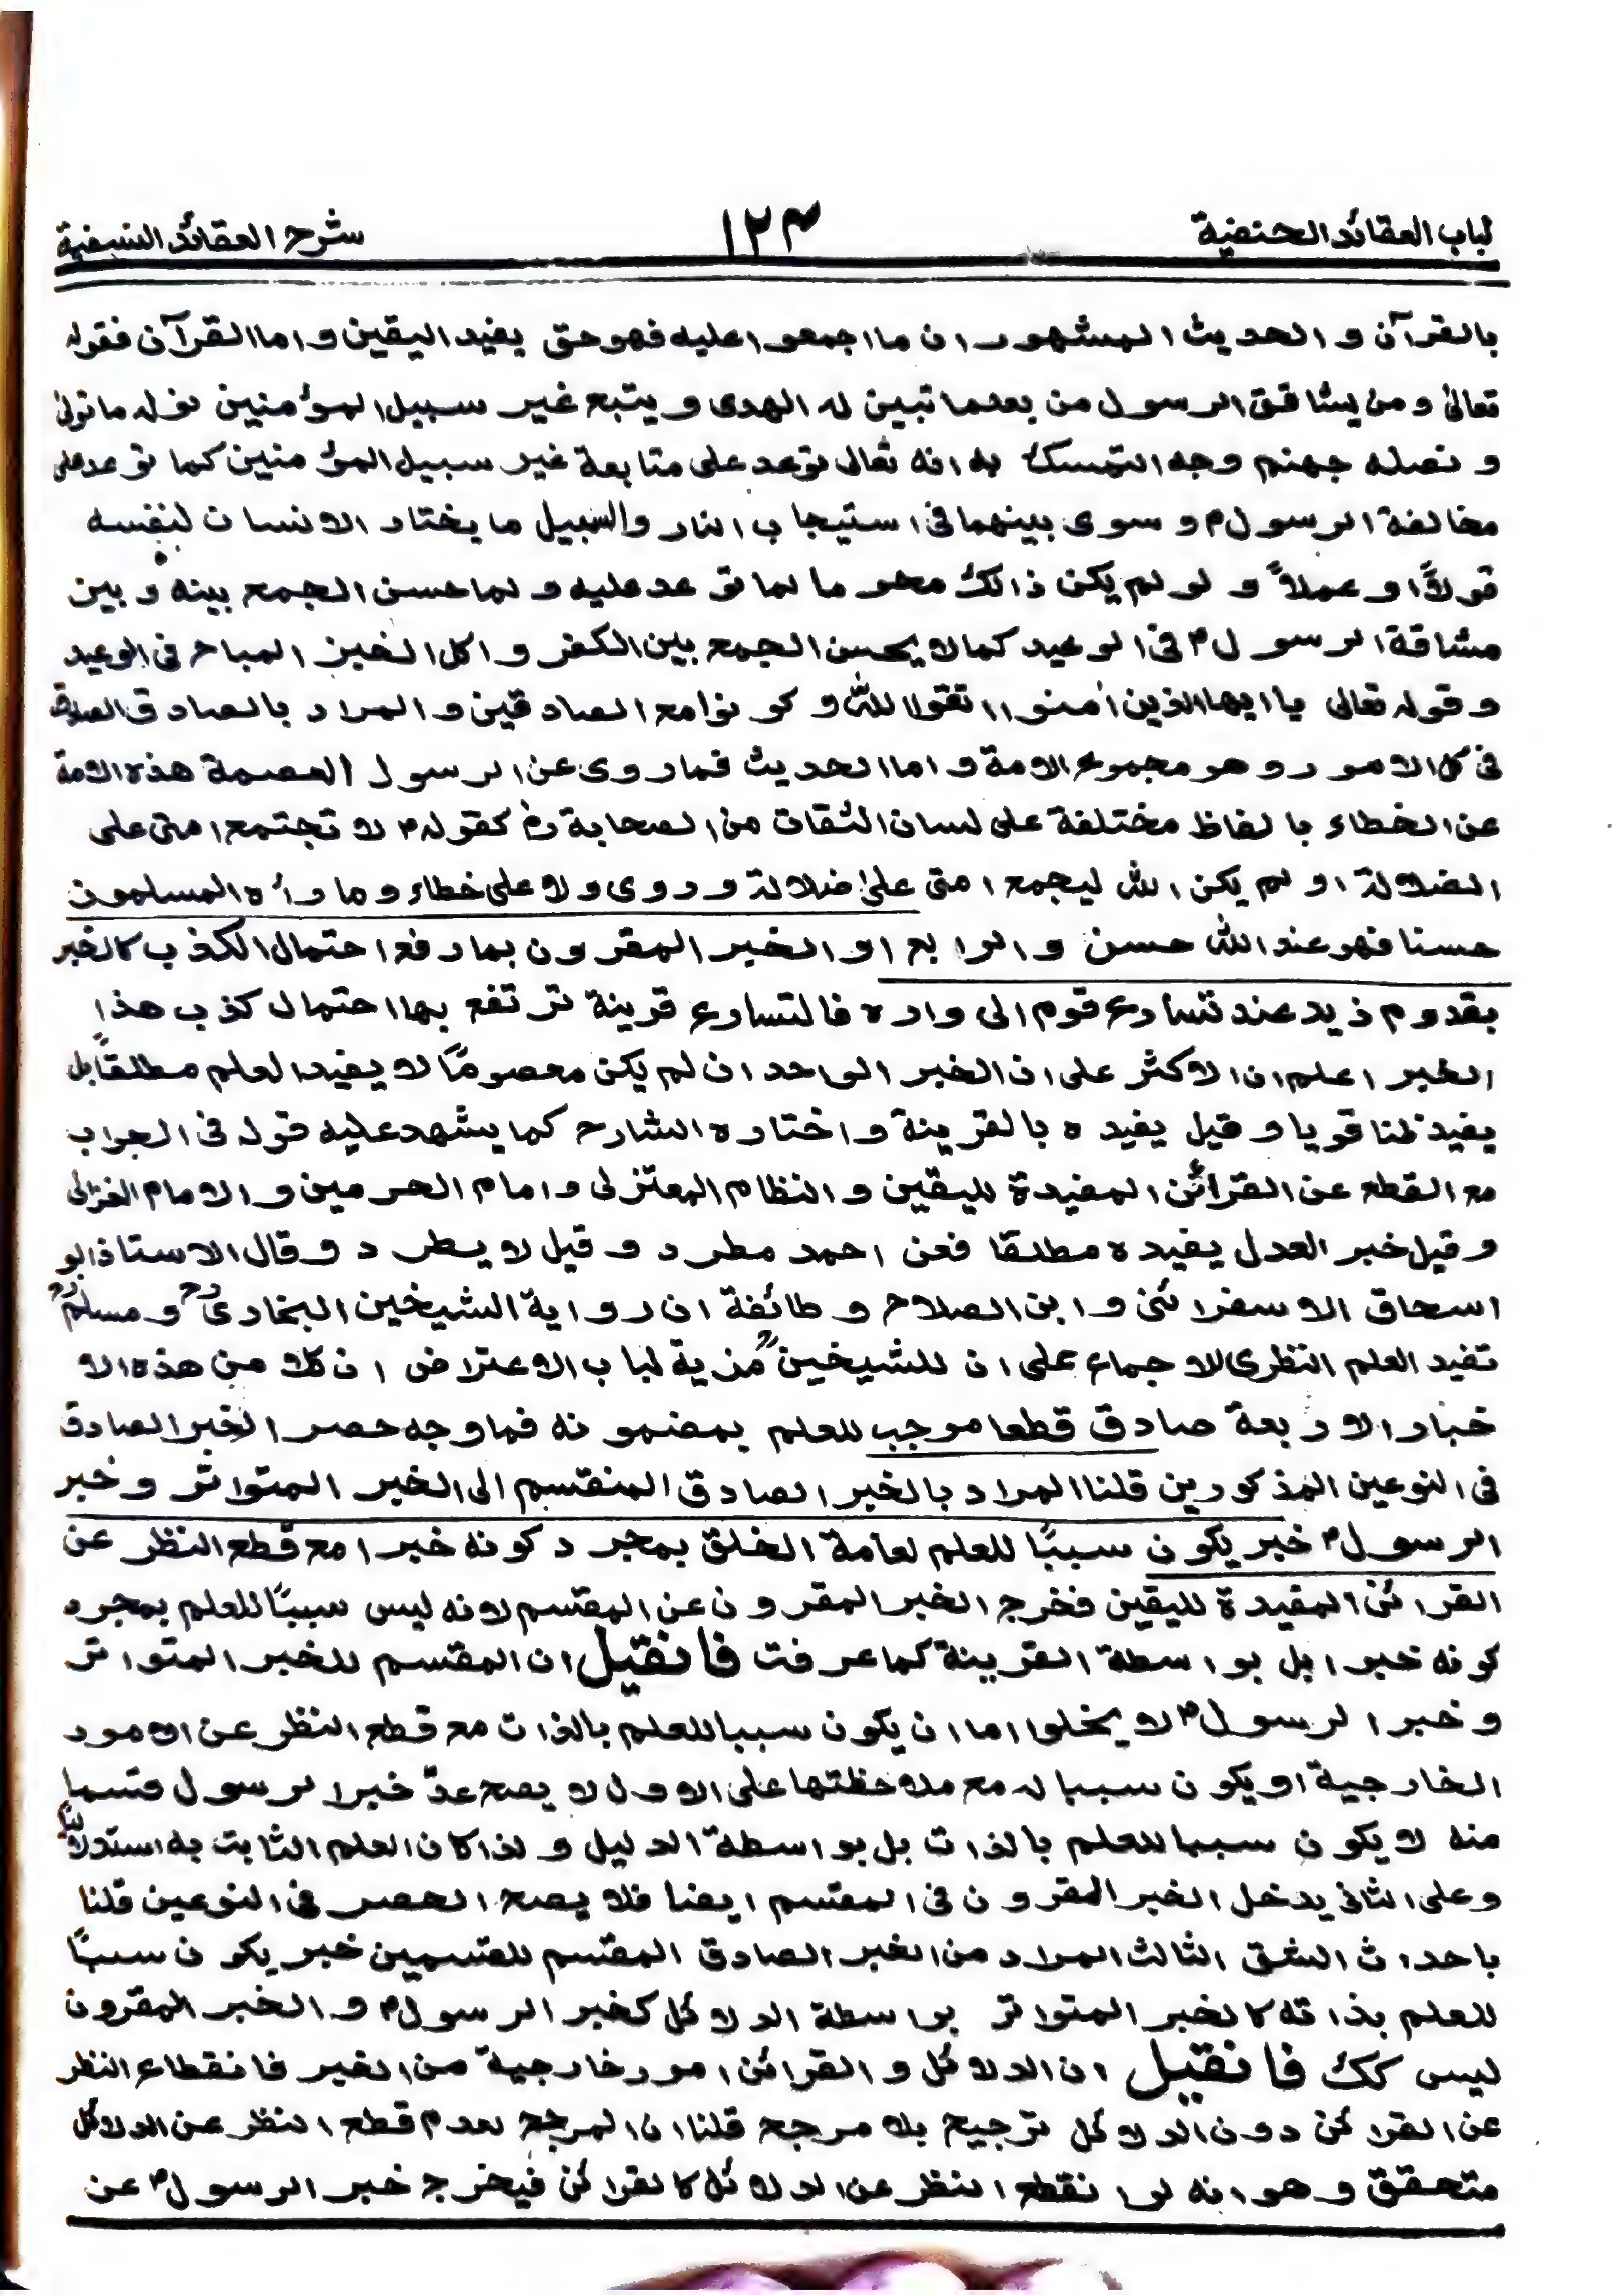 لباب العقائد الحنفية ١٢٣ شرح العقائد النسفية
بالقرآن و الحديث المشهور ان ما اجمعوا عليه فهو حق يفيد اليقين و اما القرآن فقوله
تعالىٰ و من يشاقق الرسول من بعدما تبين له الهدى و يتبع غير سبيل المؤمنين نوله ما تولىٰ
و نصله جهنم وجه التمسك به انه تعالى توعد على متابعة غير سبيل المؤمنين كما توعد على
مخالفة الرسول؀م و سوى بينهما فى استيجاب النار والسبيل ما يختار الانسان لنفسه
قولاً او عملاً و لو لم يكن ذالك محرما لما توعد عليه و لما حسن الجمع بينه و بين
مشاقة الرسول م فى الوعيد كما لا يحسن الجمع بين الكفر و اكل الخبز المباح فى الوعيد
و قوله تعالى يا ايها الذين اٰمنوا اتقوا للّٰه و كونوا مع الصادقين و المراد بالصادق الصادق
فى كل الامور و هو مجموع الامة و اما الحديث فما روى عن الرسول العصمة هذه الامة
عن الخطاء بالفاظ مختلفة على لسان الثقات من الصحابة رض كقوله م لا تجتمع امتى على
الضلالة او لم يكن اللّٰه ليجمع امتى علىٰ ضلالة و روى و لا على خطاء و ما رأه المسلمون
حسنا فهو عند اللّٰه حسن و الرابع او الخبر المقرون بما رفع احتمال الكذب كالخبر
بقدوم زيد عند تسارع قوم الى داره فالتسارع قرينة ترتفع بها احتمال كذب هذا
الخبر اعلم ان الاكثر على ان الخبر الواحد ان لم يكن معصومًا لا يفيد العلم مطلقًا بل
يفيد ظنا قويا و قيل يفيده بالقرينة و اختاره الشارح كما يشهد عليه قوله فى الجواب
مع القطع عن القرائن المفيدة لليقين و النظام المعتزلى و امام الحرمين و الامام الغزالى
و قيل خبر العدل يفيده مطلقا فعن احمد مطرد و قيل لا يطرد و قال الاستاذ ابو
اسحاق الاسفرائنى و ابن الصلاح و طائفة ان رواية الشيخين البخارىؒ و مسلمؒ
تفيد العلم النظرى للاجماع على ان للشيخينؒ مزية لباب الاعتراض ان كلا من هذه الا
خبار الاربعة صادق قطعا موجب للعلم بمضمونه فما وجه حصر الخبر الصادق
فى النوعين المذكورين قلنا المراد بالخبر الصادق المنقسم الى الخبر المتواتر و خبر
الرسول م خبر يكون سببًا للعلم لعامة الخلق بمجرد كونه خبرا مع قطع النظر عن
القرائن المفيدة لليقين فخرج الخبر المقرون عن المقسم لانه ليس سببًا للعلم بمجرد
كونه خبرا بل بواسطة القرينة كما عرفت فانقيل ان المقسم للخبر المتواتر
و خبر الرسول م لا يخلوا اما ان يكون سببا للعلم بالذات مع قطع النظر عن الامور
الخارجية او يكون سببا له مع ملاحظتها على الاول لا يصح عدّ خبر الرسول قسما
منه لا يكون سببا للعلم بالذات بل بواسطة الدليل و لذا كان العلم الثابت به استدلاليًا
و على الثانى يدخل الخبر المقرون فى المقسم ايضا فلا يصح الحصر فى النوعين قلنا
باحداث الشق الثالث المراد من الخبر الصادق المقسم للقسمين خبر يكون سببًا
للعلم بذاته كالخبر المتواتر بواسطة الدلائل كخبر الرسول م و الخبر المقرون
ليس كك فانقيل ان الدلائل و القرائن امور خارجية من الخبر فانقطاع النظر
عن القرائن دون الدلائل ترجيح بلا مرجح قلنا ان المرجح لعدم قطع النظر عن الدلائل
متحقق و هو انه لو انقطع النظر عن الدلائل كالقرائن فيخرج خبر الرسول م عن